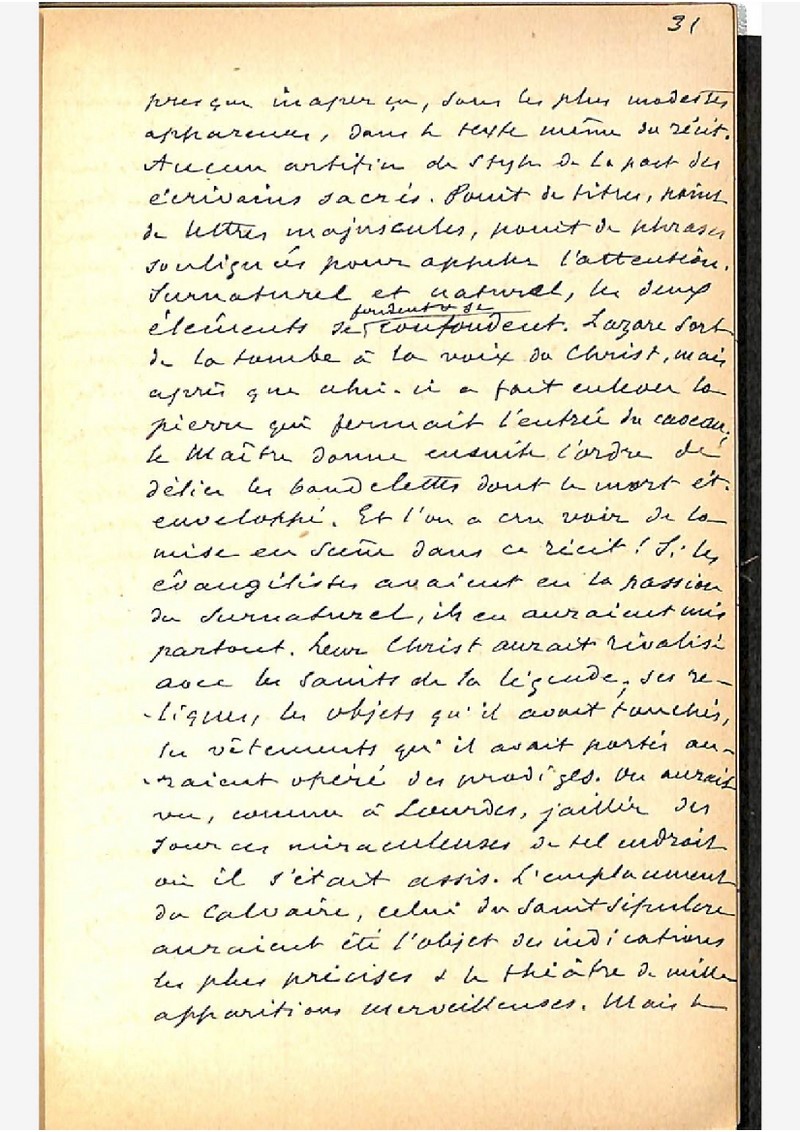 31
presque inaperçu, sous les plus modestes
apparences, dans le texte même du récit.
Aucun artifice de style de la part des
écrivains sacrés. Point de titres, point
de lettres majuscules, point de phrases
soulignées pour appeler l'attention.
Surnaturel et naturel, les deux
fondent & se
éléments se confondent. Lazare sort
de la tombe à la voix du Christ, mais
après que celui-ci a fait enlever la
pierre qui fermait l'entrée du caveau;
le Maître donne ensuite l'ordre de
délier les bandelettes dont le mort ét.
enveloppé. Et l'on a cru voir de la
mise en scène dans ce récit! Si les
évangélistes avaient eu la passion
du surnaturel, ils en auraient mis
partout. Leur Christ aurait rivalisé
avec les saints de la légende; ses re-
-liques, les objets qu'il avait touchés,
les vêtements qu'il avait portés au-
-raient opéré des prodiges. On aurait
vu, comme à Lourdes, jaillir des
sources miraculeuses de tel endroit
où il s'était assis. L'emplacement
du Calvaire, celui du Saint Sépulcre
auraient été l'objet des indications
les plus précises & le théâtre de mille
apparitions merveilleuses. Mais le